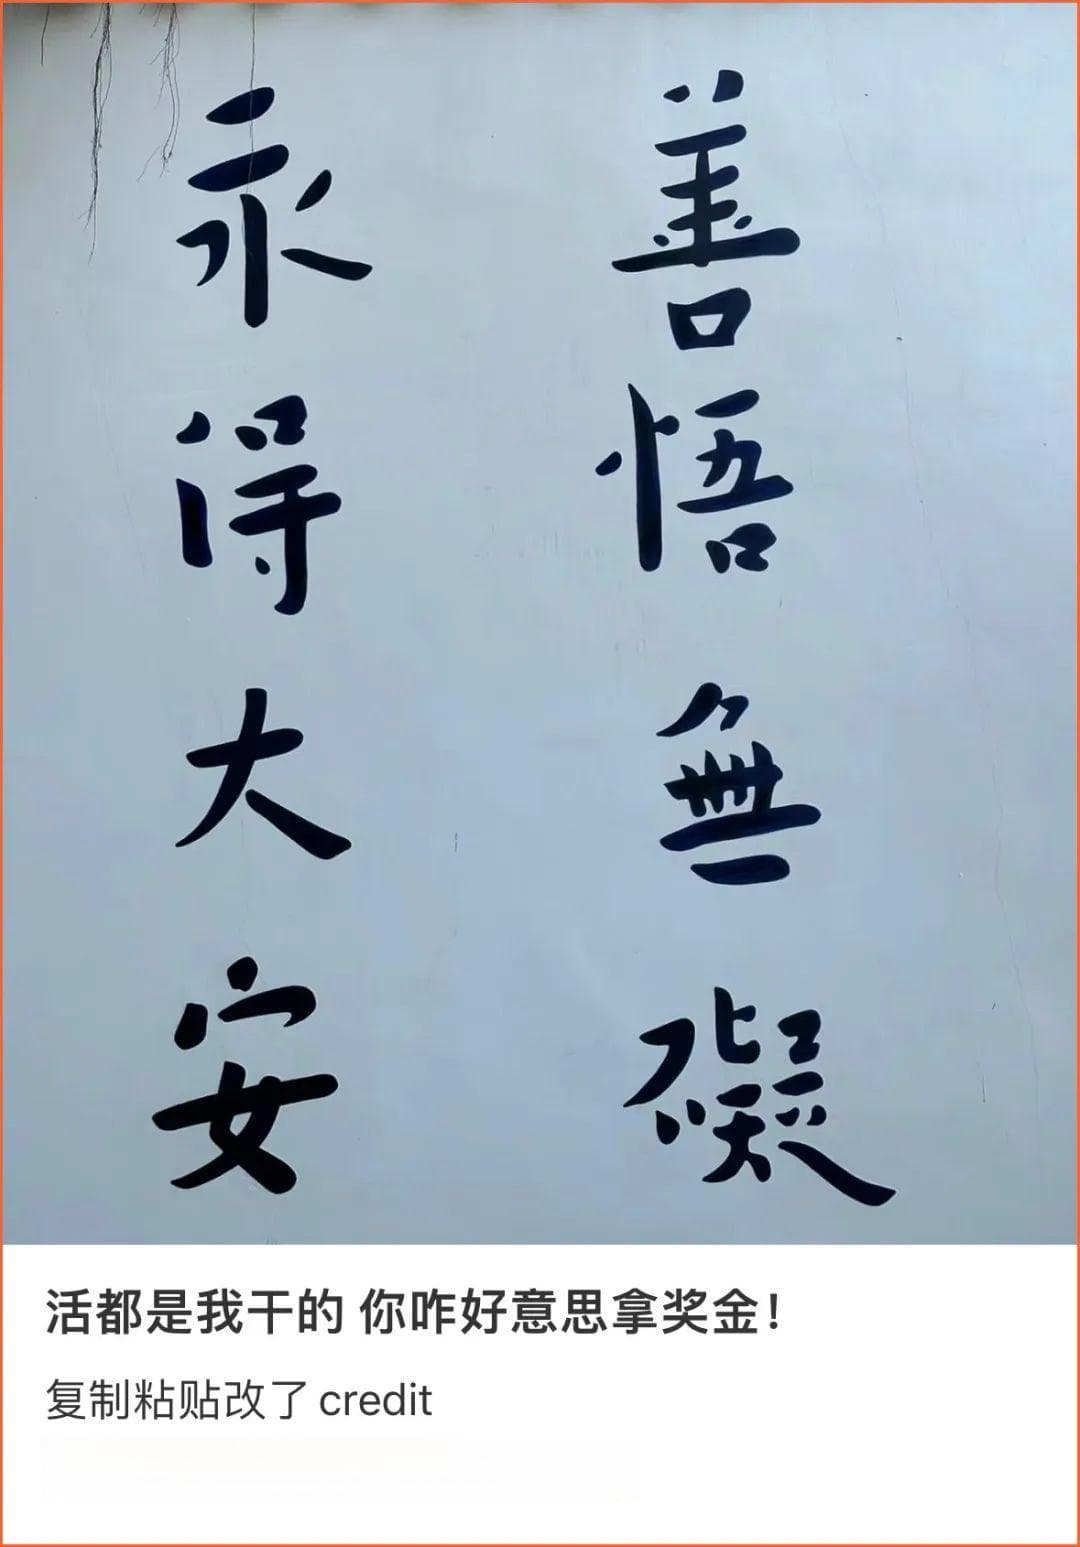 善悟無礙
永得大安
活都是我干的 你咋好意思拿奖金！
复制粘贴改了credit